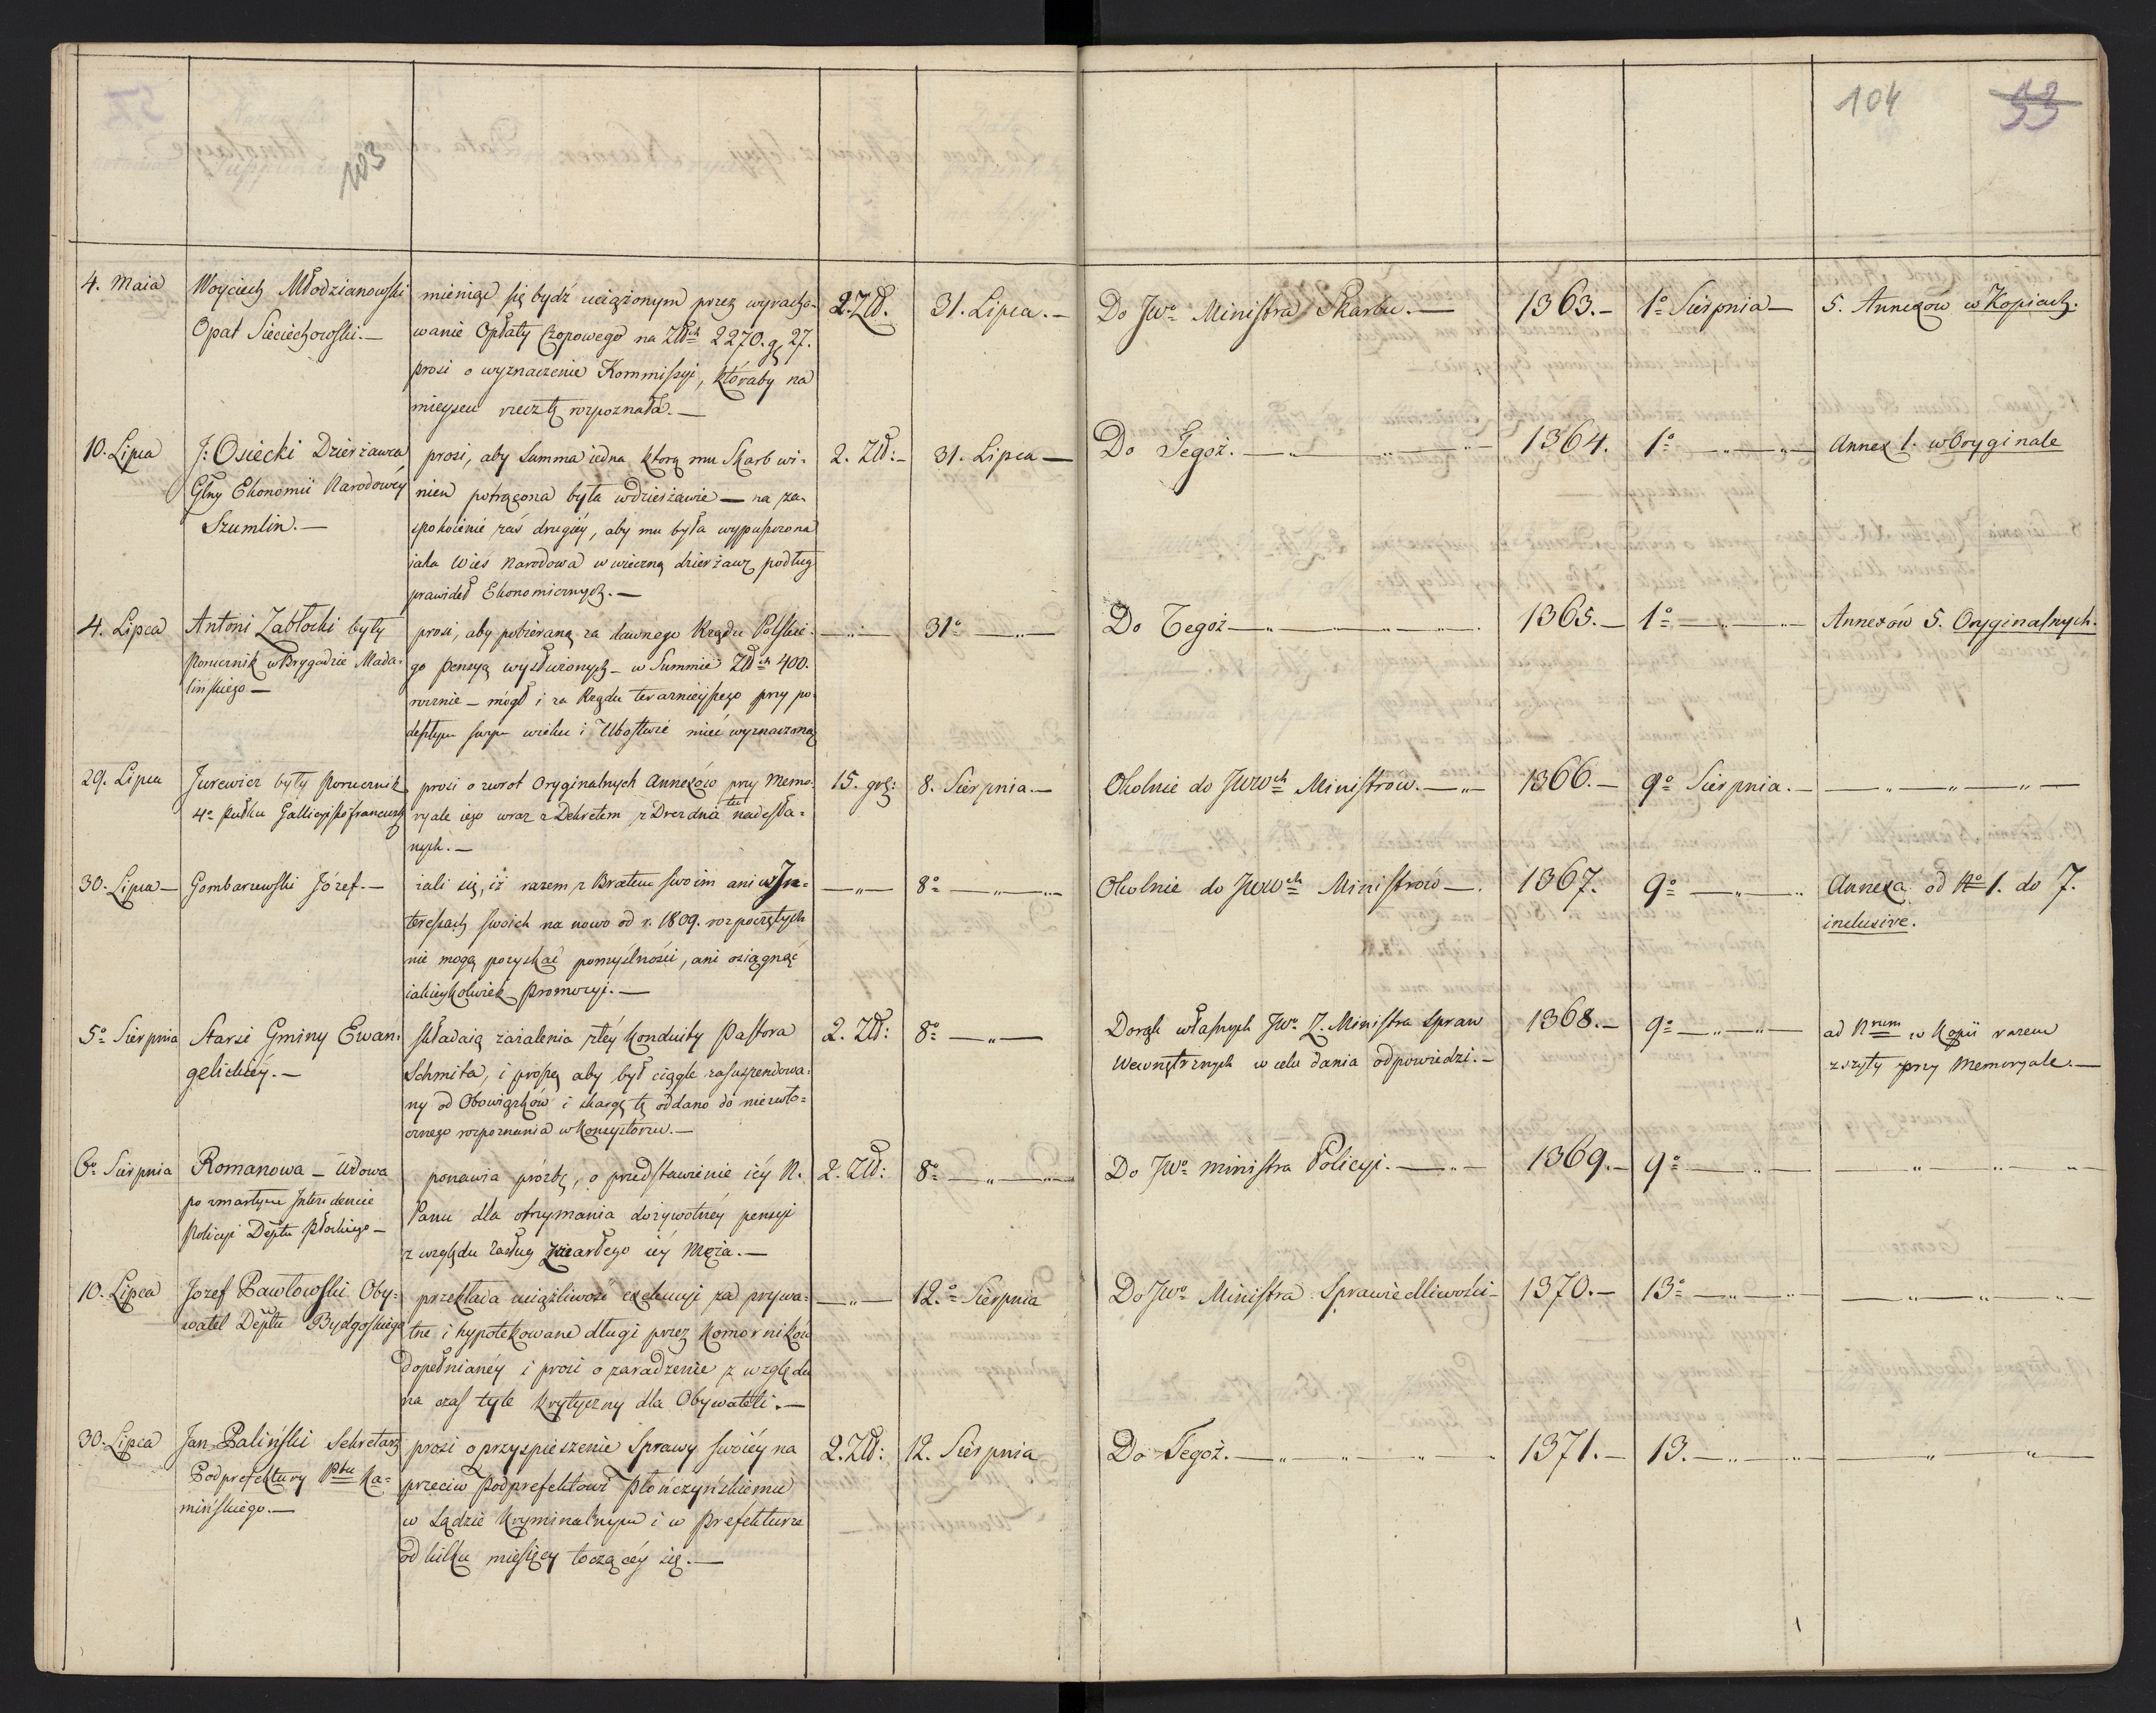 103
104
33
4. Maia
Woyciech Młodzianowski
Opat Sieciechowski.—
mieniąc się bydź uciążonym przez wyracho-
wanie Opłaty Czopowego na Złch 2270. gr 27.
prosi o wyznaczenie Kommissyi, któraby na
mieyscu rzecz tę rozpoznała.—
2. Zł.
31. Lipca.—
Do JWo Ministra Skarbu.—
1363.—
1o Sierpnia—
5. Annexów w Kopiach.
10. Lipca
J: Osiecki Dzierżawca
Głny Ekonomii Narodowéy
Szumlin.—
prosi, aby Summa iedna którą mu Skarb wi-
nien potrącona była w dzierżawie — na za-
spokoienie zaś drugiéy, aby mu była wypuszczona
iaka Wieś Narodowa w wieczną dzierżawę podług
prawideł Ekonomicznych.—
2. Zł:—
31. Lipca—
Do Tegoż.— „ — „ —
1364.
1o — „ — „ —
Annex 1. w Oryginale
4. Lipca
Antoni Zabłocki były
Porucznik w Brygadzie Mada-
lińskiego—
prosi, aby pobieraną za dawnego Rządu Polskie-
go pensyą wysłużonych — w Summie Złch 400.
rocznie — mógł i za Rządu teraznieyszego przy po-
deszłym swym wieku i Ubóstwie mieć wyznaczoną
— „ —
31o — „ —
Do Tegoż — „ — „ —
1365.—
1o — „ — „ —
Annexów 5. Oryginalnych.
29. Lipca
Jurewicz były Porucznik
4o Pułku Gallicyisko francuzk
prosi o zwrot Oryginalnych Annexów przy Memo-
ryale iego wraz z Dekretem z Drezdna tu nadesła-
nych.—
15. grs:
8. Sierpnia.—
Okolnie do JWWch Ministrow.— „ —
1366.—
9o Sierpnia.—
— „ — „ — „ —
30. Lipca—
Gombarzewski Józef.—
żali się, iż razem z Bratem swoim ani w In-
teressach swoich na nowo od r. 1809. rozpoczętych
nie mogą pozyskać pomyślności, ani osiągnąć
iakieykolwiek Promocyi.—
— „ —
8o — „ —
Okolnie do JWWch Ministrów—.
1367.
9o — „ — „
Annexa od No 1. do 7.
inclusive.
5o Sierpnia
Starsi Gminy Ewan-
gelickiéy.—
składaią zażalenia złéy Konduity Pastora
Schmita, i proszą aby był ciągle zasuspendowa-
ny od Obowiązków i skargę tę oddano do niezwło-
cznego rozpoznania w Konsystorzu.—
2. Zł:
8o — „ —
Do rąk własnych JWo Z. Ministra Spraw
Wewnętrznych w celu dania odpowiedzi.—
1368.—
9o — „ — „ —
ad Nrum w Kopii razem
zszyty przy Memoryale.—
6o Sierpnia
Romanowa — Wdowa
po zmarłym Intendencie
Policyi Deptu Płockiego—
ponawia prózbę, o przedstawienie iéy N.
Panu dla otrzymania dożywotnéy pensyi
z względu zasług zmarłego iéy Męża.—
2. Zł:
8o — „ — „ —
Do JWo Ministra Policyi.— „ —
1369.—
9o — „ —
— „ — „ — „ —
10. Lipca
Jozef Pawłowski Oby-
watel Deptu Bydgoskiego
przekłada uciążliwość exekucyi za prywa-
tne i hypotekowane długi przez Komorników
dopełnianéy i prosi o zaradzenie z względu
na czas tyle krytyczny dla Obywateli.—
— „ —
12.o Sierpnia
Do JWo Ministra Sprawiedliwości—
1370.—
13o — „ — „ —
— „ — „ — „ —
30. Lipca
Jan Paliński Sekretarz
Podprefektury Ptu Ka-
mińskiego.—
prosi o przyspieszenie Sprawy swoiéy na
przeciw Podprefektowi Płończyńskiemu
w Sądzie Kryminalnym i w Prefekturze
od kilku miesięcy toczącéy się.—
2. Zł:
12. Sierpnia
Do Tegoż.— „ — „ — „ —
1371.—
13.— „ — „ —
— „ — „ —